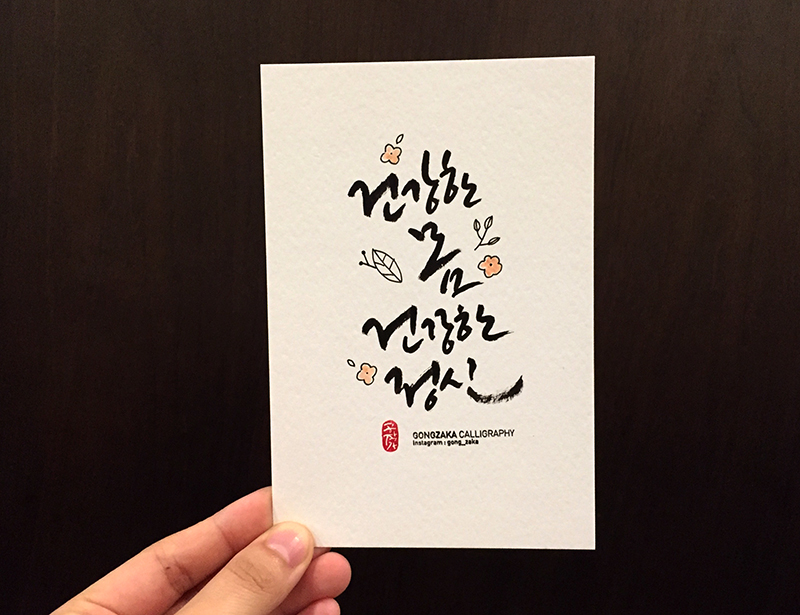 건강한
몸
건강한
정신
GONGZAKA CALLIGRAPHY
Instagram : gong_zaka